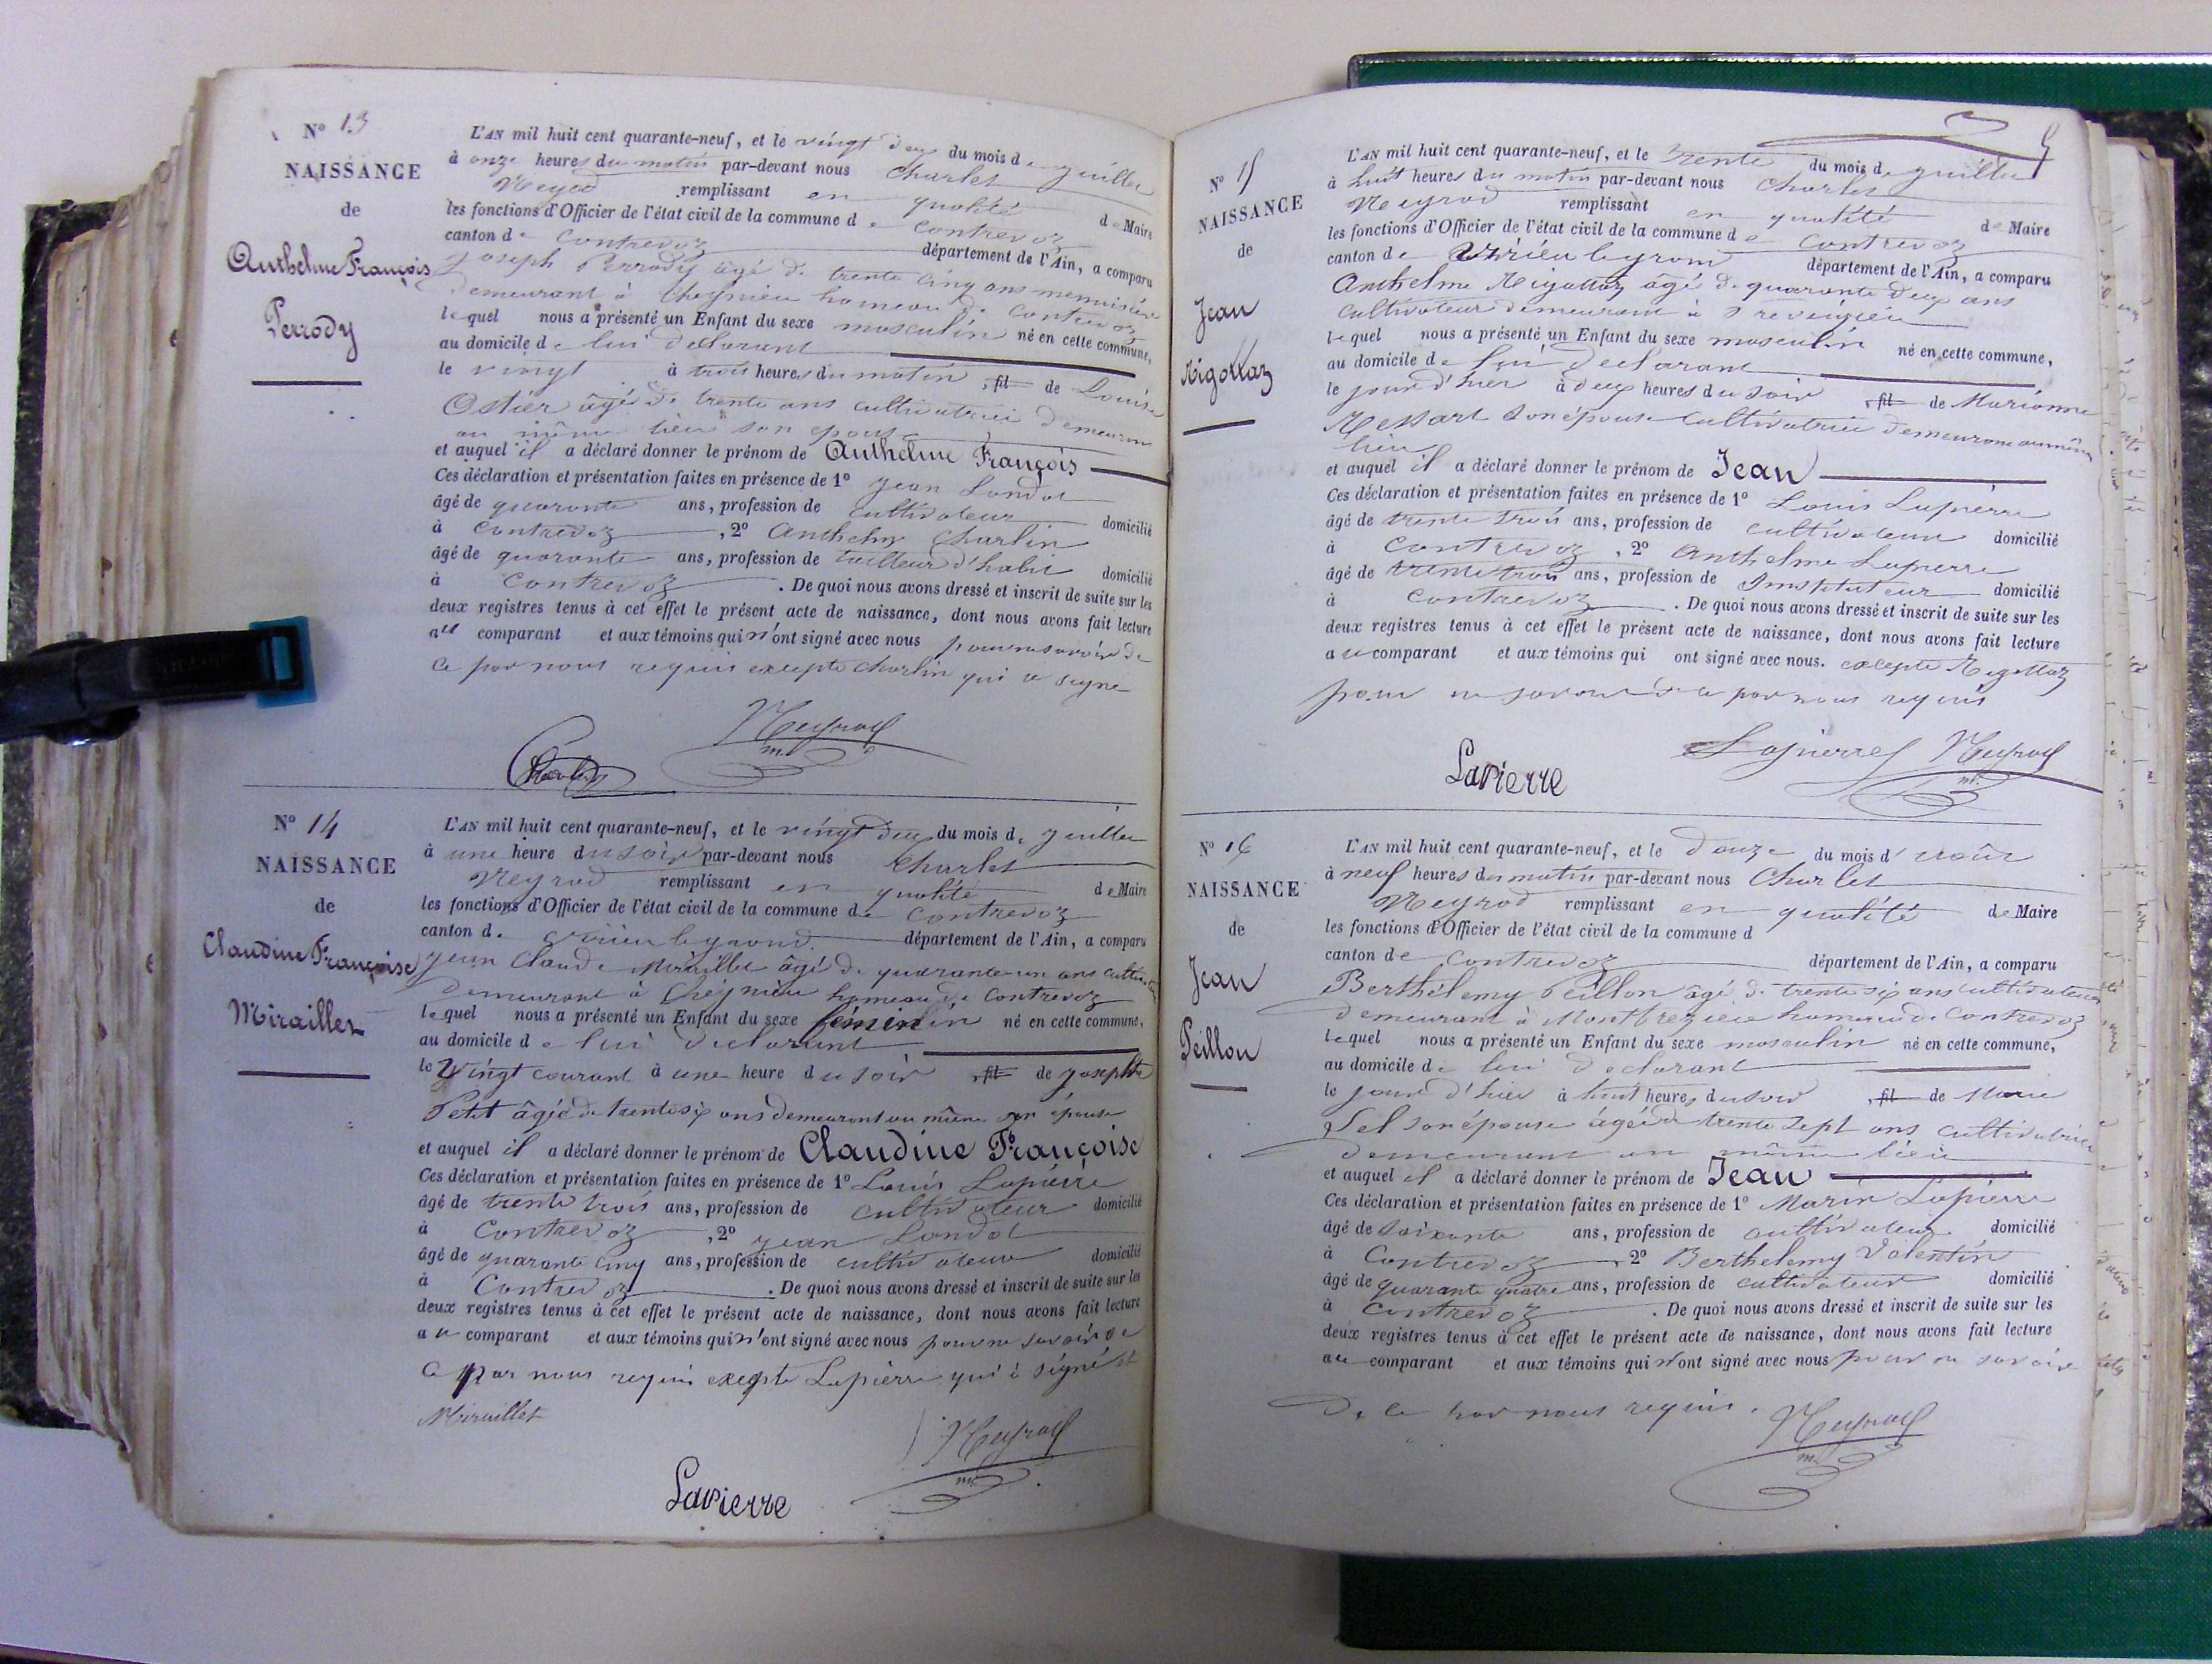 N° 13
NAISSANCE
de
Anthelme François
Perrody
L'AN mil huit cent quarante-neuf, et le vingt deux du mois de juillet
à onze heures du matin par-devant nous Charles
Neyrod remplissant en qualité de Maire
les fonctions d'Officier de l'état civil de la commune de Contrevoz
canton de Contrevoz département de l'Ain, a comparu
Joseph Perrody âgé de trente cinq ans menuisier
demeurant à Cheynieu hameau de Contrevoz
lequel nous a présenté un Enfant du sexe masculin né en cette commune,
au domicile de lui déclarant
le vingt à trois heures du matin, fil de Louise
Ostier âgée de trente ans cultivatrice demeurant
au même lieu son epouse
et auquel il a déclaré donner le prénom de Anthelme François
Ces déclaration et présentation faites en présence de 1° Jean Landot
âgé de quarante ans, profession de cultivateur domicilié
à Contrevoz, 2° Anthelme Charlin
âgé de quarante ans, profession de tailleur d'habit domicilié
à Contrevoz. De quoi nous avons dressé et inscrit de suite sur les
deux registres tenus à cet effet le présent acte de naissance, dont nous avons fait lecture
au comparant et aux témoins qui n'ont signé avec nous pour ne savoir de
ce par nous requis excepte Charlin qui a signe
Neyrod
m.
Charlin
N° 14
NAISSANCE
de
Claudine Françoise
Miraillet
L'AN mil huit cent quarante-neuf, et le vingt deux du mois de juillet
à une heure du soir par-devant nous Charles
Neyrod remplissant en qualité de Maire
les fonctions d'Officier de l'état civil de la commune de Contrevoz
canton de virieu legrand département de l'Ain, a comparu
Jean Claude Miraillet âgé de quarante un ans cultivateur
demeurant à Cheynieu hameau de Contrevoz
lequel nous a présenté un Enfant du sexe féminin né en cette commune,
au domicile de lui déclarant
le vingt courant à une heure du soir, fil de Josephte
Petit âgée de trente six ans demeurant au même son épouse
et auquel il a déclaré donner le prénom de Claudine Françoise
Ces déclaration et présentation faites en présence de 1° Louis Lapierre
âgé de trente trois ans, profession de cultivateur domicilié
à Contrevoz, 2° Jean Landot
âgé de quarante cinq ans, profession de cultivateur domicilié
à Contrevoz. De quoi nous avons dressé et inscrit de suite sur les
deux registres tenus à cet effet le présent acte de naissance, dont nous avons fait lecture
au comparant et aux témoins qui n'ont signé avec nous pour ne savoir de
ce par nous requis excepte Lapierre qui à signé et
Miraillet
Neyrod
m.
Lapierre
N° 15
NAISSANCE
de
Jean
Rigottaz
L'AN mil huit cent quarante-neuf, et le trente du mois de juillet
à huit heures du matin par-devant nous Charles
Neyrod remplissant en qualité de Maire
les fonctions d'Officier de l'état civil de la commune de Contrevoz
canton de virieu legrand département de l'Ain, a comparu
Anthelme Rigottaz âgé de quarante deux ans
cultivateur demeurant à Preveizieu
lequel nous a présenté un Enfant du sexe masculin né en cette commune,
au domicile de lui déclarant
le jour d'hier à deux heures du soir, fil de Marianne
son épouse cultivatrice demeurant au même
lieu
et auquel il a déclaré donner le prénom de Jean
Ces déclaration et présentation faites en présence de 1° Louis Lapierre
âgé de trente trois ans, profession de cultivateur domicilié
à Contrevoz, 2° Anthelme Lapierre
âgé de trente trois ans, profession de Instituteur domicilié
à Contrevoz. De quoi nous avons dressé et inscrit de suite sur les
deux registres tenus à cet effet le présent acte de naissance, dont nous avons fait lecture
au comparant et aux témoins qui ont signé avec nous. excepte Rigottaz
pour ne savoir de ce par nous requis
Lapierre Neyrod
m.
Lapierre
N° 16
NAISSANCE
de
Jean
Peillon
L'AN mil huit cent quarante-neuf, et le douze du mois d'août
à neuf heures du matin par-devant nous Charles
Neyrod remplissant en qualité de Maire
les fonctions d'Officier de l'état civil de la commune d
canton de Contrevoz département de l'Ain, a comparu
Berthélemy Peillon âgé de trente six ans cultivateur
demeurant à Montbrezieu hameau de Contrevoz
lequel nous a présenté un Enfant du sexe masculin né en cette commune,
au domicile de lui déclarant
le jour d'hier à huit heures du soir, fil de Marie
Sel son épouse âgée de trente sept ans cultivatrice
demeurant au même lieu
et auquel il a déclaré donner le prénom de Jean
Ces déclaration et présentation faites en présence de 1° Marin Lapierre
âgé de soixante ans, profession de cultivateur domicilié
à Contrevoz, 2° Berthelemy Valentin
âgé de quarante quatre ans, profession de cultivateur domicilié
à Contrevoz. De quoi nous avons dressé et inscrit de suite sur les
deux registres tenus à cet effet le présent acte de naissance, dont nous avons fait lecture
au comparant et aux témoins qui n'ont signé avec nous pour ne savoir
de ce par nous requis.
Neyrod
m.